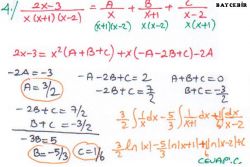 BAYCEBİR
4/ (2x-3)/(x(x+1)(x-2)) = A/x + B/(x+1) + C/(x-2)
(x+1)(x-2) x(x-2) x(x+1)
2x-3 = x²(A+B+C) + x(-A-2B+C) - 2A
-2A = -3 -A-2B+C = 2 A+B+C = 0
A = 3/2 -2B+C = 7/2 B+C = -3/2
-2B+C = 7/2
B+C = -3/2
-3B = 5
B = -5/3 C = 1/6
3/2 ∫ 1/x dx - 5/3 ∫ 1/(x+1) dx + 1/6 ∫ dx/(x-2)
3/2 ln|x| - 5/3 ln|x+1| + 1/6 ln|x-2| + C
CEVAP: C